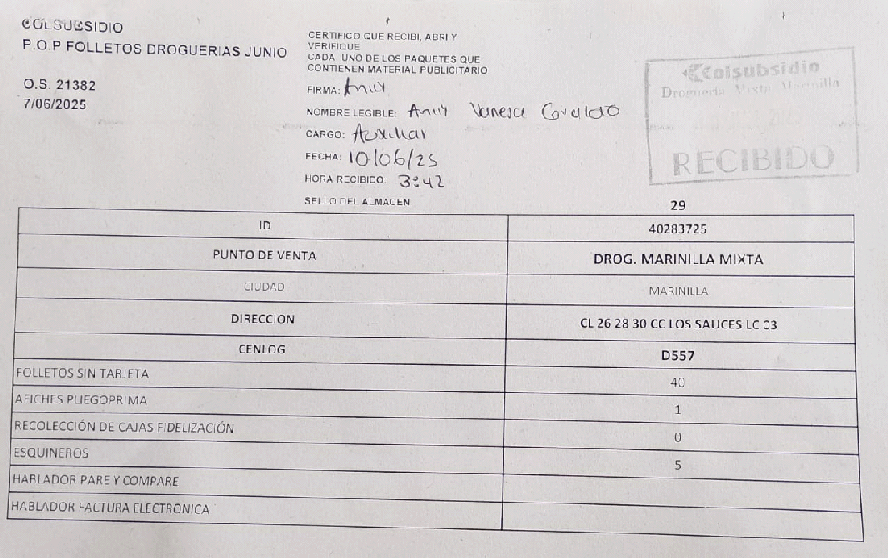 COLSUBSIDIO
P.O.P FOLLETOS DROGUERIAS JUNIO
O.S. 21382
7/06/2025
CERTIFICO QUE RECIBI, ABRI Y
VERIFIQUE
CADA UNO DE LOS PAQUETES QUE
CONTIENEN MATERIAL PUBLICITARIO
FIRMA: Anny
NOMBRE LEGIBLE: Anny Vanesa
CARGO: Auxiliar
FECHA: 10/06/25
HORA RECIBIDO: 3:42
SELLO DEL ALMACEN
Colsubsidio
Droguería Mixta Marinilla
RECIBIDO
29
ID 40283725
PUNTO DE VENTA DROG. MARINILLA MIXTA
CIUDAD MARINILLA
DIRECCION CL 26 28 30 CC LOS SAUCES LC 03
CENLOG D557
FOLLETOS SIN TARJETA 40
AFICHES PLIEGOPRIMA 1
RECOLECCIÓN DE CAJAS FIDELIZACIÓN 0
ESQUINEROS 5
HABLADOR PARE Y COMPARE
HABLADOR FACTURA ELECTRONICA